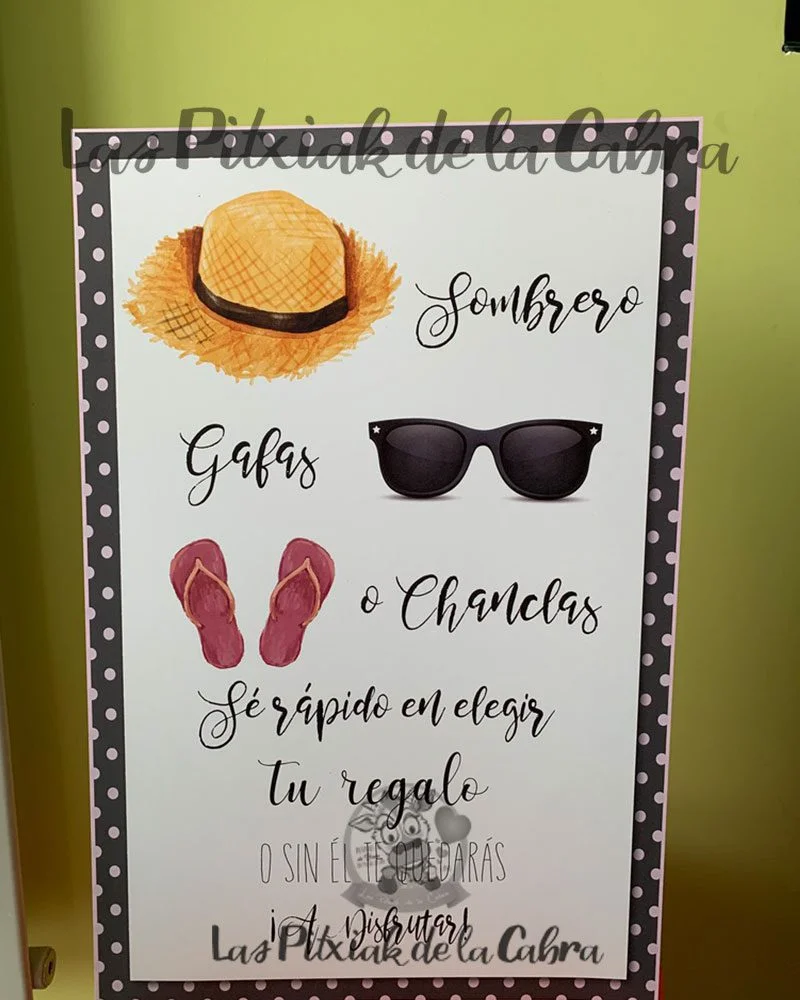 Las Pitxiak de la Cabra
Sombrero
Gafas
o Chanclas
Sé rápido en elegir
tu regalo
O SIN ÉL TE QUEDARÁS
¡A Disfrutar!
Las Pitxiak de la Cabra